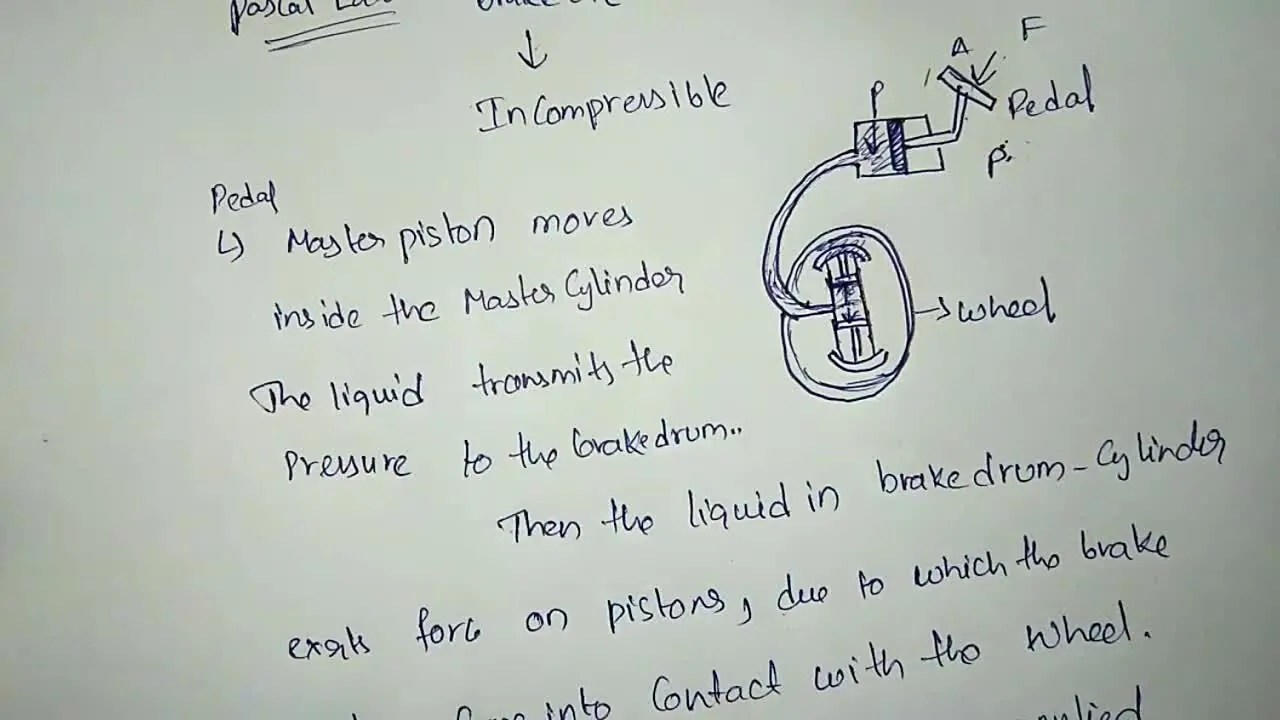 Pascal Law
Incompressible
A
F
P
Pedal
P.
Pedal
Master piston moves
inside the Master Cylinder
→ wheel
The liquid transmits the
pressure to the brakedrum..
Then the liquid in brakedrum - Cylinder
exerts force on pistons, due to which the brake
into Contact with the wheel.